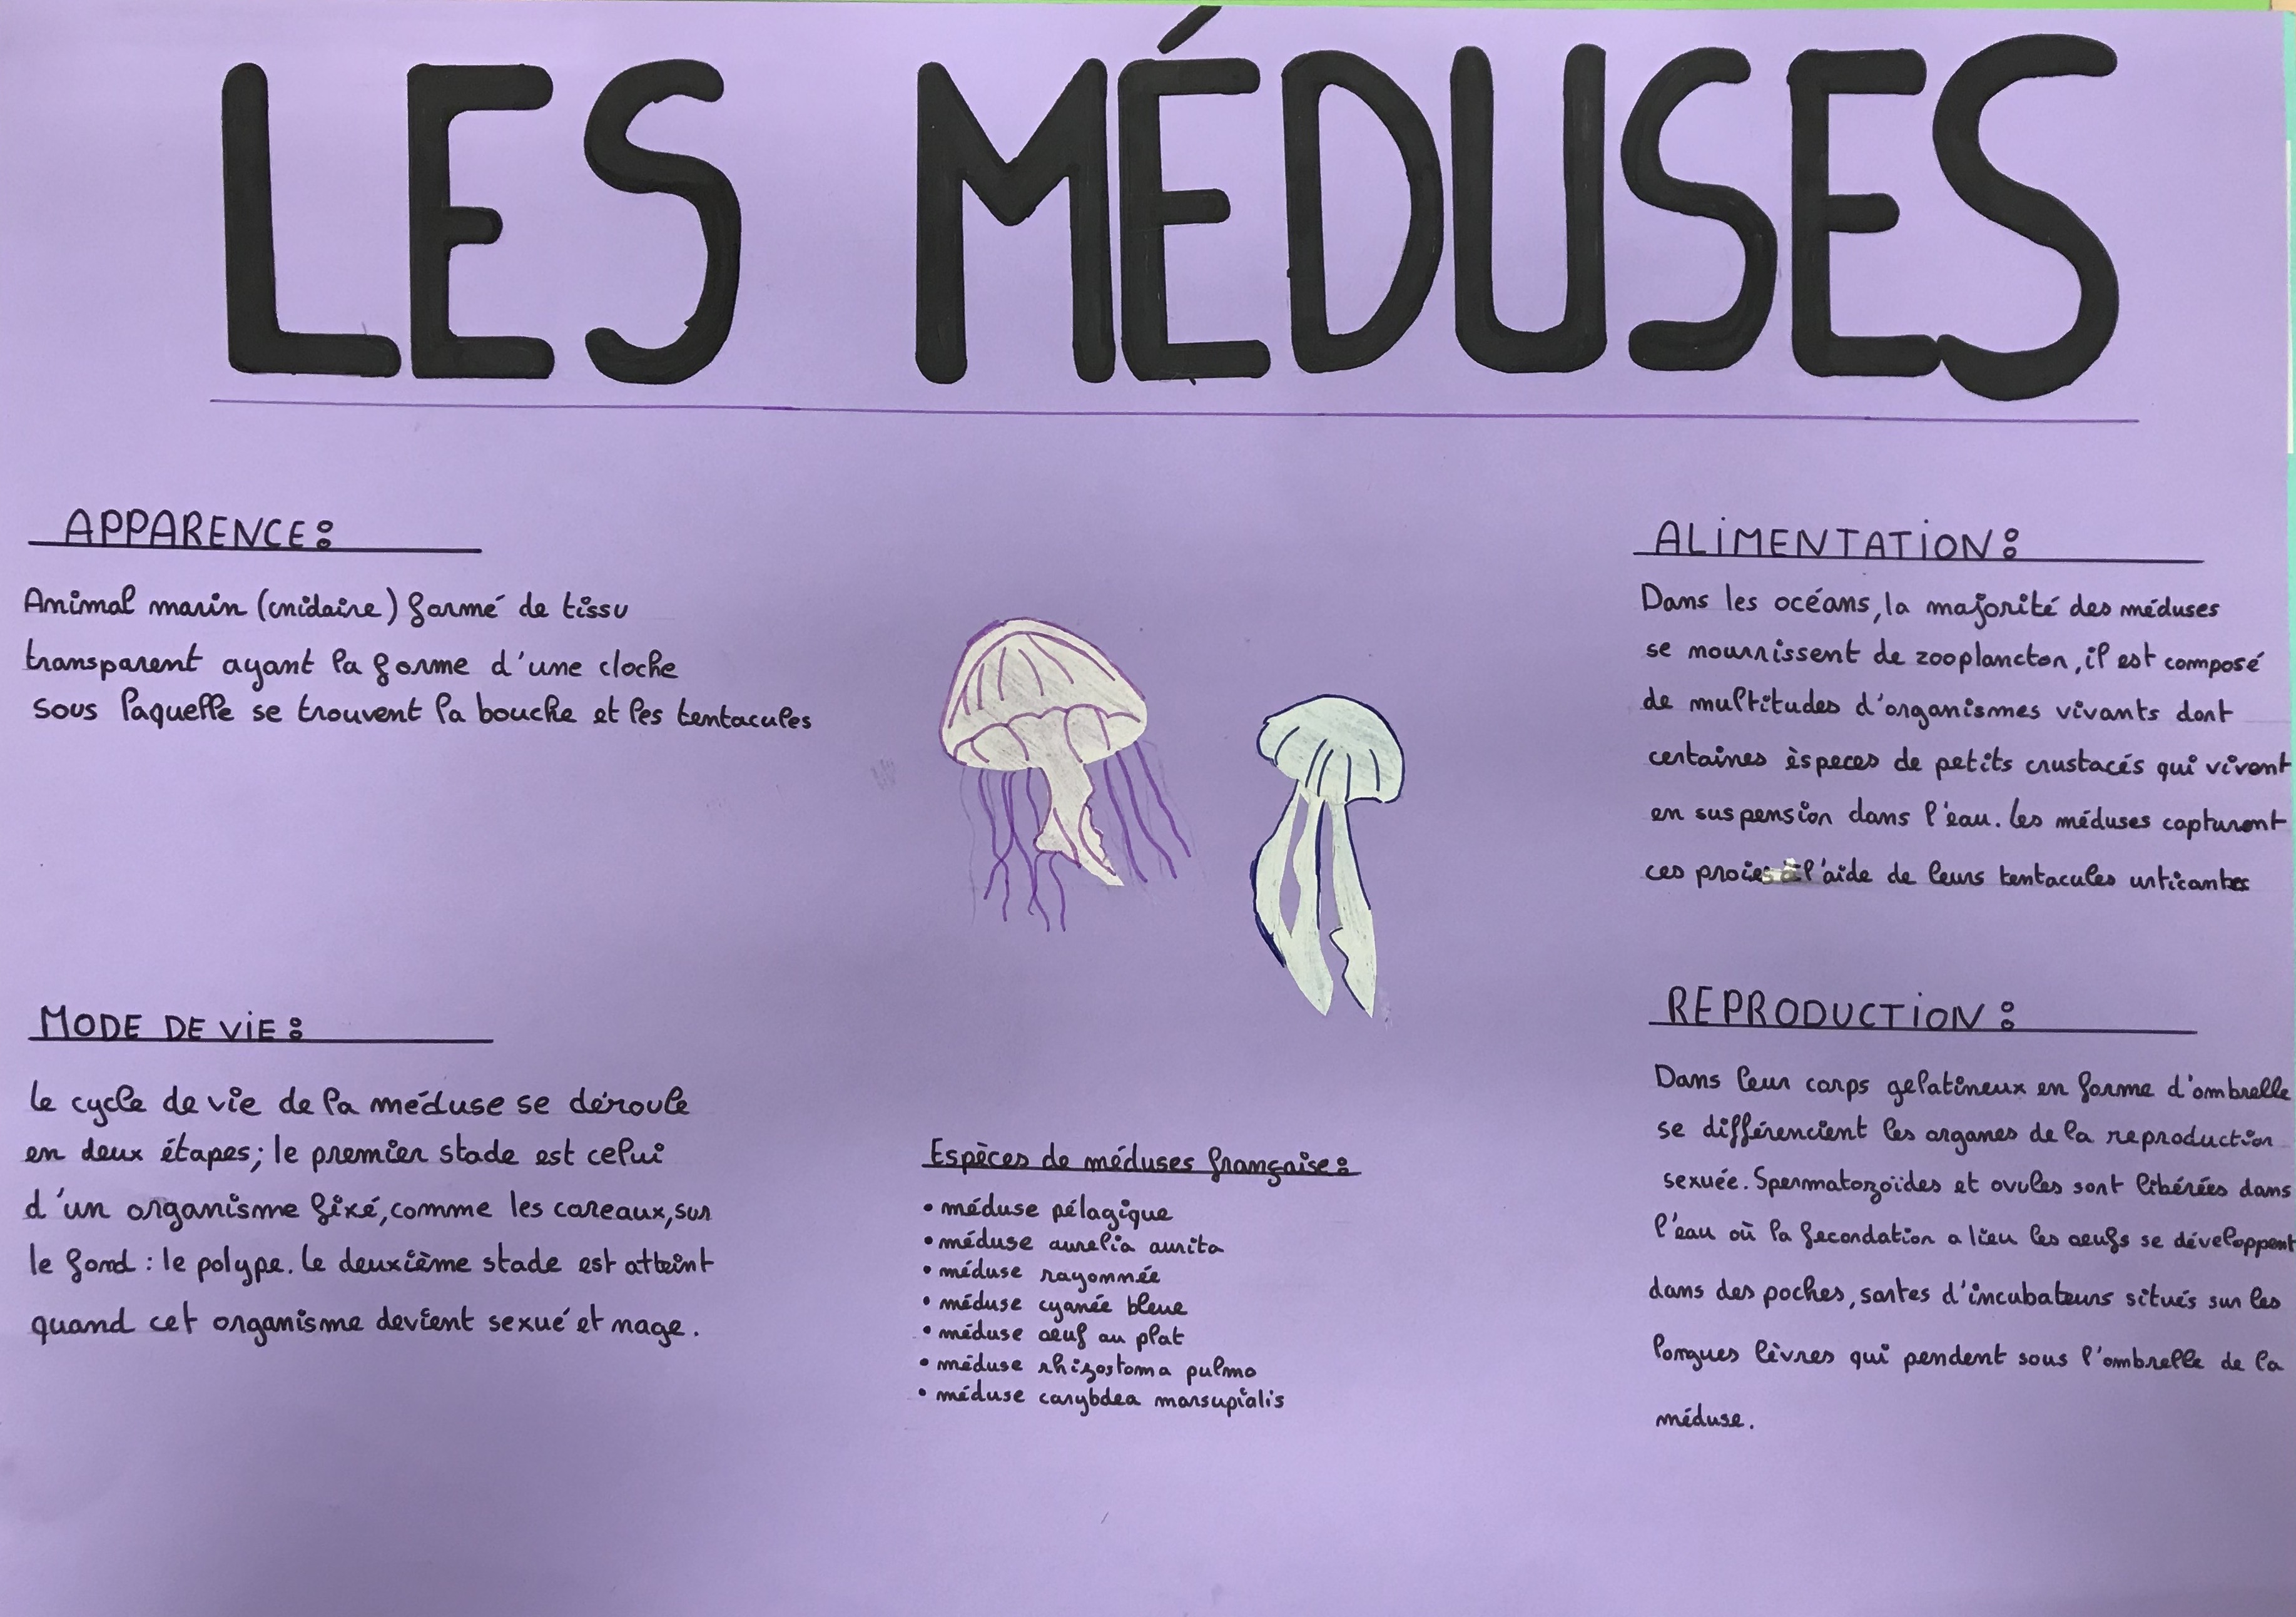 LES MÉDUSES
APPARENCE:
Animal marin (cnidaire) formé de tissu
transparent ayant la forme d'une cloche
sous laquelle se trouvent la bouche et les tentacules
MODE DE VIE:
Le cycle de vie de la méduse se déroule
en deux étapes; le premier stade est celui
d'un organisme fixé, comme les coreaux, sur
le fond : le polype. Le deuxième stade est atteint
quand cet organisme devient sexué et nage.
Espèces de méduses française:
• méduse pélagique
• méduse aurelia aurita
• méduse rayonnée
• méduse cyanée bleue
• méduse oeuf au plat
• méduse rhizostoma pulmo
• méduse carybdea marsupialis
ALIMENTATION:
Dans les océans, la majorité des méduses
se nourrissent de zooplancton, il est composé
de multitudes d'organismes vivants dont
certaines èspeces de petits crustacés qui vivent
en suspension dans l'eau. Les méduses capturent
ces proies à l'aide de leurs tentacules urticantes
REPRODUCTION:
Dans leur corps gelatineux en forme d'ombrelle
se différencient les organes de la reproduction
sexuée. Spermatozoïdes et ovules sont libérées dans
l'eau où la fecondation a lieu les oeufs se développent
dans des poches, sortes d'incubateurs situés sur les
longues lèvres qui pendent sous l'ombrelle de la
méduse.